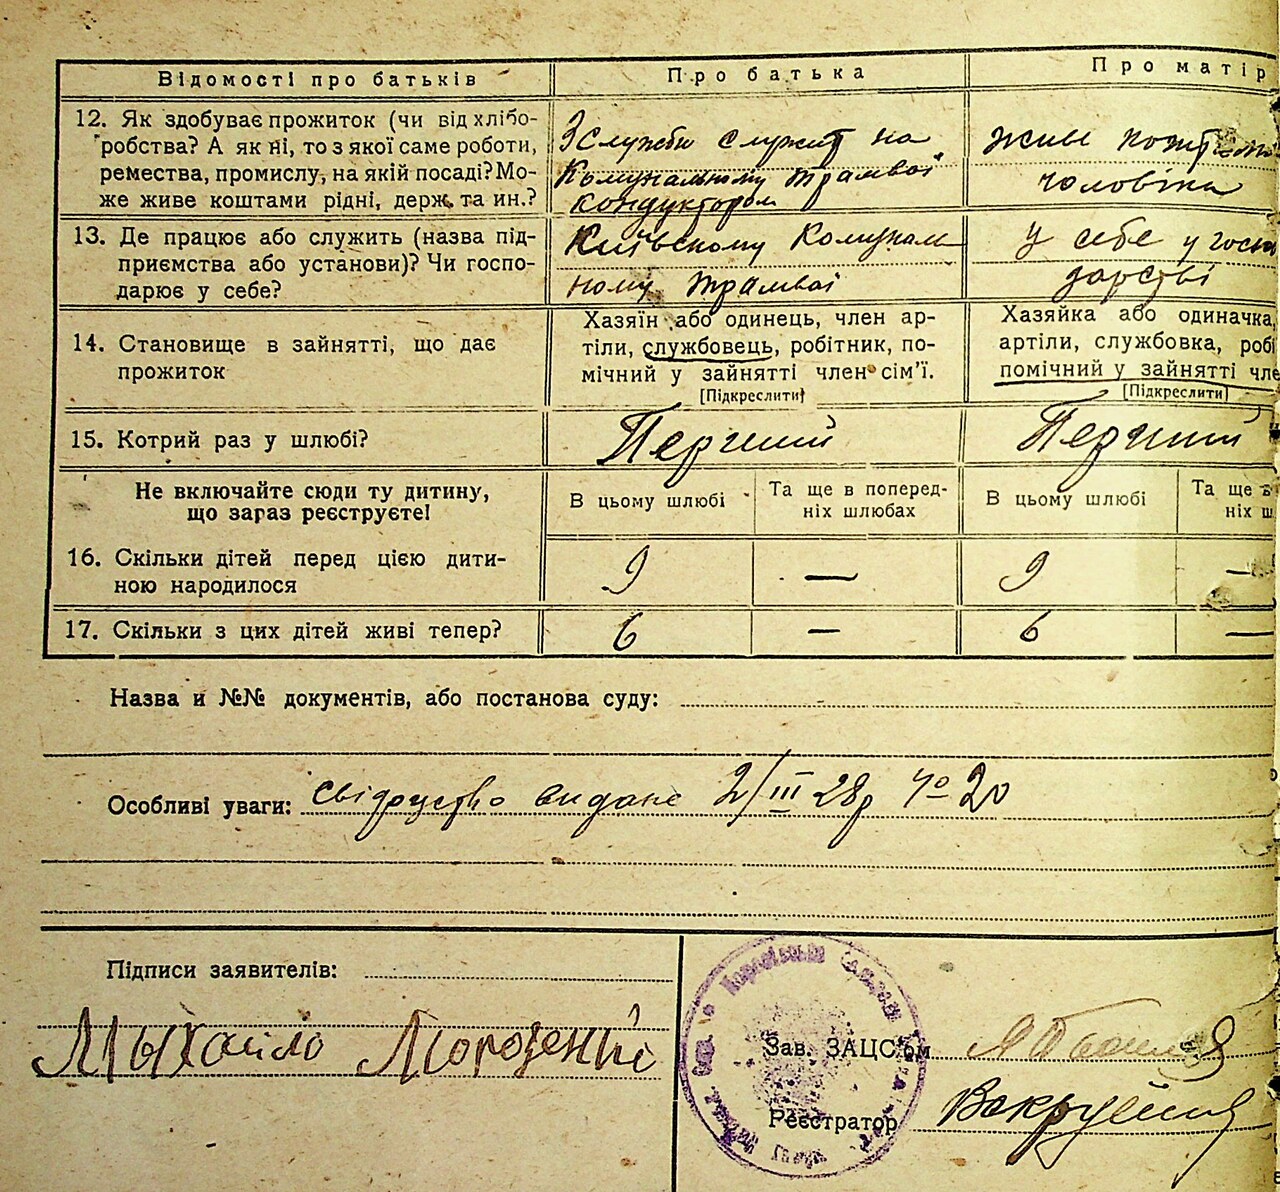 Відомості про батьків
Про батька
Про матір
12. Як здобуває прожиток (чи від хлібо-
робства? А як ні, то з якої саме роботи,
ремества, промислу, на якій посаді? Мо-
же живе коштами рідні, держ. та ин.?
З служби служит на
Комунальному трамваї
кондуктором
живе
чоловіка
13. Де працює або служить (назва під-
приємства або установи)? Чи госпо-
дарює у себе?
Київскому Комунал
ному трамваї
у себе у госпо
дарстві
14. Становище в зайнятті, що дає
прожиток
Хазяїн або одинець, член ар-
тіли, службовець, робітник, по-
мічний у зайнятті член сім'ї.
[Підкреслити]
Хазяйка або одиначка,
артіли, службовка, робі
помічний у зайнятті чле
[Підкреслити]
15. Котрий раз у шлюбі?
Перший
Перший
Не включайте сюди ту дитину,
що зараз реєструєте!
В цьому шлюбі
Та ще в поперед-
ніх шлюбах
В цьому шлюбі
Та ще в
ніх ш
16. Скільки дітей перед цією дити-
ною народилося
9
—
9
—
17. Скільки з цих дітей живі тепер?
6
—
6
—
Назва и №№ документів, або постанова суду:
Особливі уваги: свідоцтво видане 2/III 28р № 20
Підписи заявителів:
Мыхайло
Зав. ЗАЦС'ом
Реєстратор